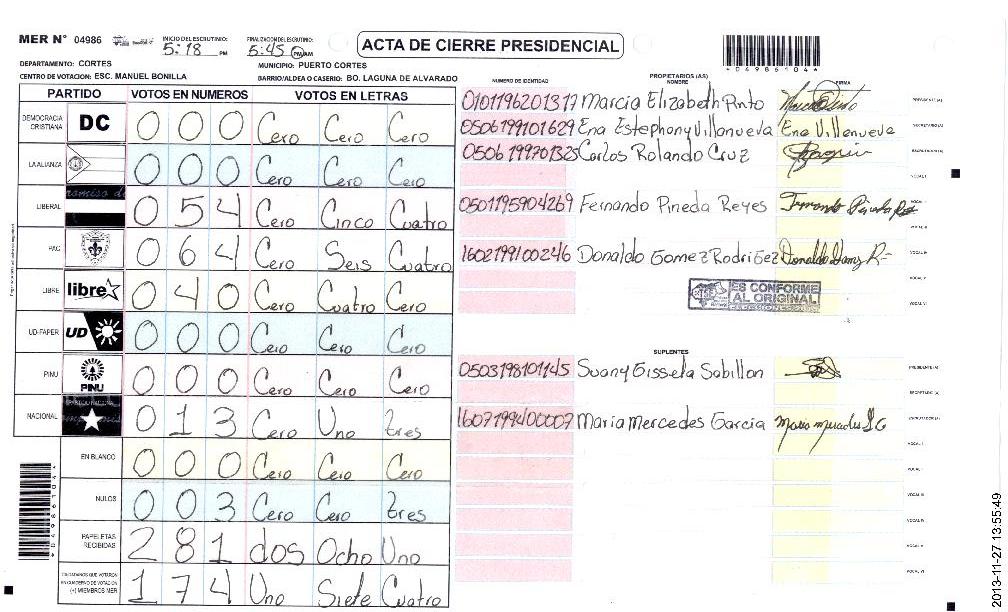 MER N° 04986
INICIO DEL ESCRUTINIO: 5:18 PM
FINALIZACION DEL ESCRUTINIO: 5:45 PM/AM
ACTA DE CIERRE PRESIDENCIAL
*04986104*
DEPARTAMENTO: CORTES
MUNICIPIO: PUERTO CORTES
CENTRO DE VOTACION: ESC. MANUEL BONILLA
BARRIO/ALDEA O CASERIO: BO. LAGUNA DE ALVARADO
PARTIDO VOTOS EN NUMEROS VOTOS EN LETRAS
DEMOCRACIA CRISTIANA DC 0 0 0 Cero Cero Cero
LA ALIANZA 0 0 0 Cero Cero Cero
LIBERAL 0 5 4 Cero Cinco Cuatro
PAC 0 6 4 Cero Seis Cuatro
LIBRE libre 0 4 0 Cero Cuatro Cero
UD-FAPER UD 0 0 0 Cero Cero Cero
PINU PINU 0 0 0 Cero Cero Cero
NACIONAL 0 1 3 Cero Uno tres
EN BLANCO 0 0 0 Cero Cero Cero
NULOS 0 0 3 Cero Cero tres
PAPELETAS RECIBIDAS 2 8 1 dos Ocho Uno
CIUDADANOS QUE VOTARON EN CUADERNO DE VOTACION (+) MIEMBROS MER 1 7 4 Uno Siete Cuatro
PROPIETARIOS (AS)
NUMERO DE IDENTIDAD NOMBRE FIRMA
0101196201317 Marcia Elizabeth Pinto PRESIDENTE(A)
0506199101629 Ena Estephony Villanueva Ena Villanueva SECRETARIO(A)
0506199701325 Carlos Rolando Cruz ESCRUTADOR(A)
VOCAL I
0501195904269 Fernando Pineda Reyes Fernando Pineda R VOCAL II
VOCAL III
1602199100246 Donaldo Gomez Rodriguez VOCAL IV
VOCAL V
VOCAL VI
ES CONFORME
AL ORIGINAL
SUPLENTES
0503198101145 Suany Gissela Sabillon PRESIDENTE (A)
SECRETARIO (A)
1607199400007 Maria Mercedes Garcia ESCRUTADOR (A)
VOCAL I
VOCAL II
VOCAL III
VOCAL IV
VOCAL V
VOCAL VI
*04986104*
2013-11-27 13:55:49